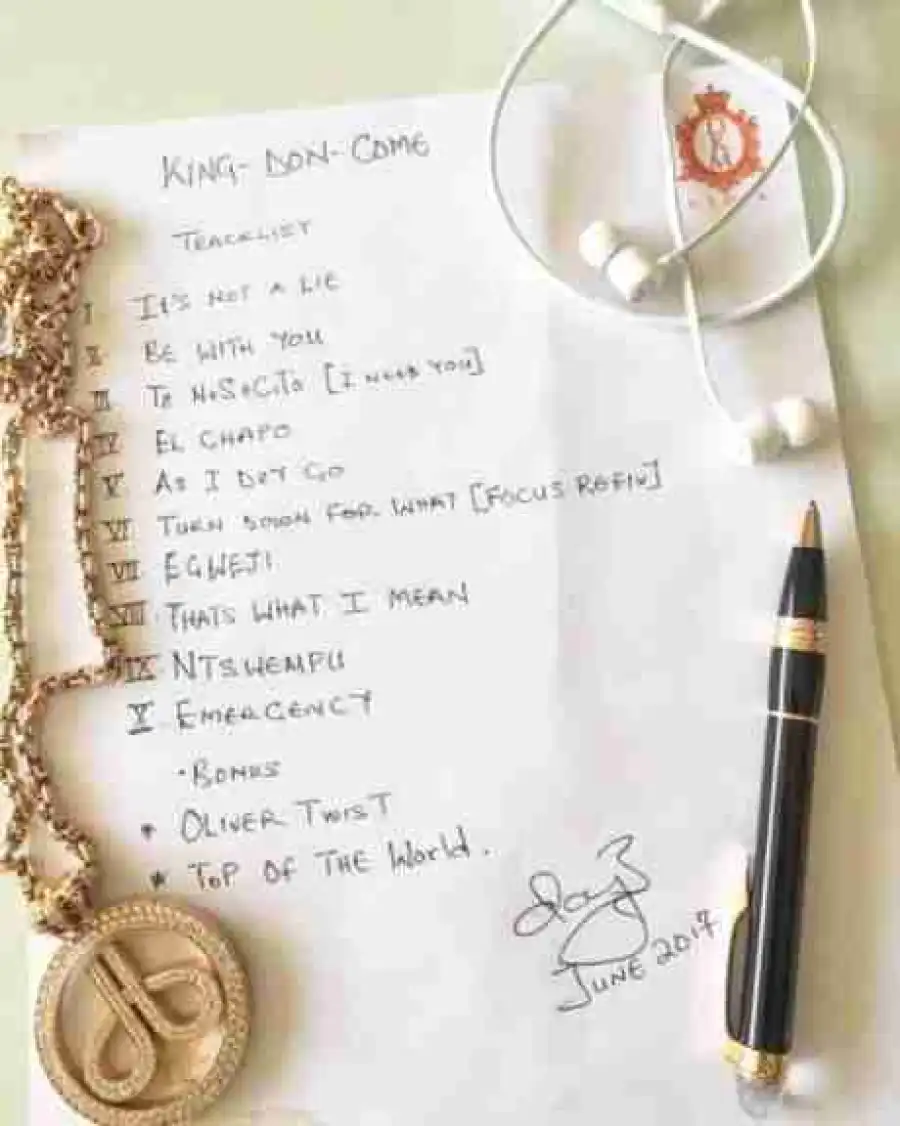 KING-DON-COME
TRACKLIST
I IT'S NOT A LIE
II BE WITH YOU
III TE NESECITO [I NEED YOU]
IV EL CHAPO
V AS I DEY GO
VI TURN DOWN FOR WHAT [FOCUS REFIX]
VII EGWEJI
VIII THATS WHAT I MEAN
IX NTSWEMPU
X EMERGENCY
·BONUS
* OLIVER TWIST
* TOP OF THE World.
JUNE 2017